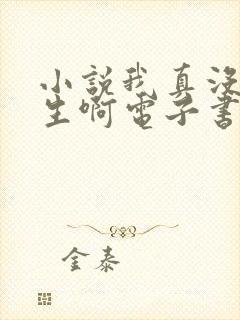 小說我真没
生啊電子書
金泰